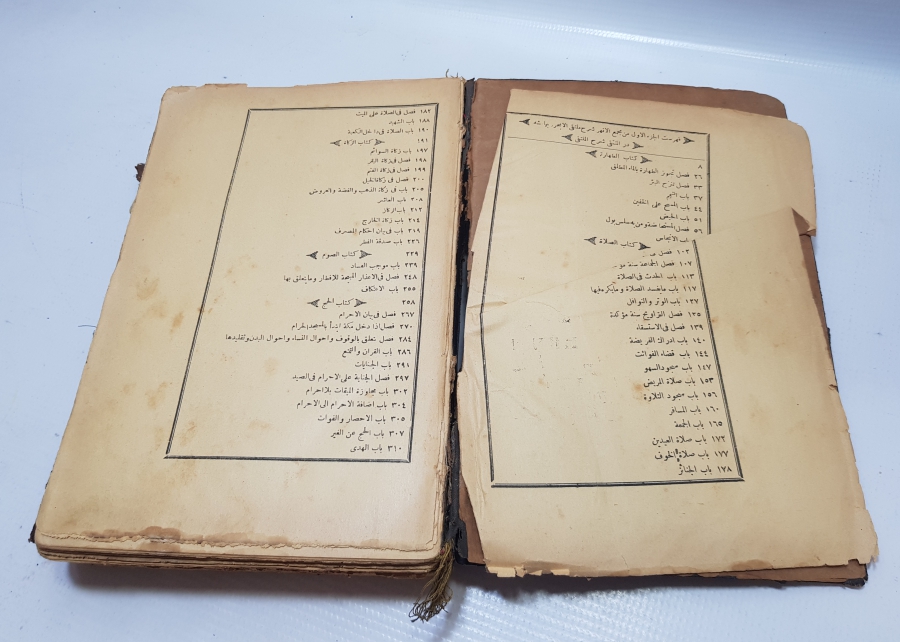 فهرست الجزء الاول من مجمع الانهر شرح ملتقى الابحر بهامشه
در المنتقى شرح الملتقى
كتاب الطهارة
٨
٢٦ فصل تجوز الطهارة بالماء المطلق
٣٣ فصل تنزح البئر
٣٧ باب التيمم
٤٤ باب المسح على الخفين
٥١ باب الحيض
٥٦ فصل المستحاضة ومن به سلس بول
باب الانجاس
كتاب الصلاة
١٠٢ فصل
١٠٧ فصل الجماعة سنة مو
١١٣ باب الحدث فى الصلاة
١١٧ باب مايفسد الصلاة ومايكره فيها
١٢٧ باب الوتر والنوافل
١٣٥ فصل التراويح سنة مؤكدة
١٣٩ فصل فى الاستسقاء
١٤٠ باب ادراك الفريضة
١٤٤ باب قضاء الفوائت
١٤٧ باب سجود السهو
١٥٣ باب صلاة المريض
١٥٦ باب سجود التلاوة
١٦٠ باب المسافر
١٦٥ باب الجمعة
١٧٢ باب صلاة العيدين
١٧٧ باب صلاة الخوف
١٧٨ باب الجنائز
١٨٢ فصل فى الصلاة على الميت
١٨٨ باب الشهيد
١٩٠ باب الصلاة فى داخل الكعبة
١٩١ كتاب الزكاة
١٩٧ باب زكاة السوائم
١٩٨ فصل فى زكاة البقر
١٩٩ فصل فى زكاة الغنم
٢٠٠ فصل فى زكاة الخيل
٢٠٥ باب فى زكاة الذهب والفضة والعروض
٢٠٨ باب العاشر
٢١٢ باب الركاز
٢١٤ باب زكاة الخارج
٢١٩ باب فى بيان احكام المصرف
٢٢٦ باب صدقة الفطر
٢٢٩ كتاب الصوم
٢٣٩ باب موجب الفساد
٢٤٨ فصل فى الاعذار المبيحة للافطار ومايتعلق بها
٢٥٥ باب الاعتكاف
٢٥٨ كتاب الحج
٢٦٧ فصل فى بيان الاحرام
٢٧٠ فصل اذا دخل مكة ابتدأ بالمسجد الحرام
٢٨٤ فصل تتعلق بالوقوف واحوال النساء واحوال البدن وتقليدها
٢٨٦ باب القران والتمتع
٢٩١ باب الجنايات
٢٩٧ فصل الجناية على الاحرام فى الصيد
٣٠٢ باب مجاوزة الميقات بلا احرام
٣٠٤ باب اضافة الاحرام الى الاحرام
٣٠٥ باب الاحصار والفوات
٣٠٧ باب الحج عن الغير
٣١٠ باب الهدى